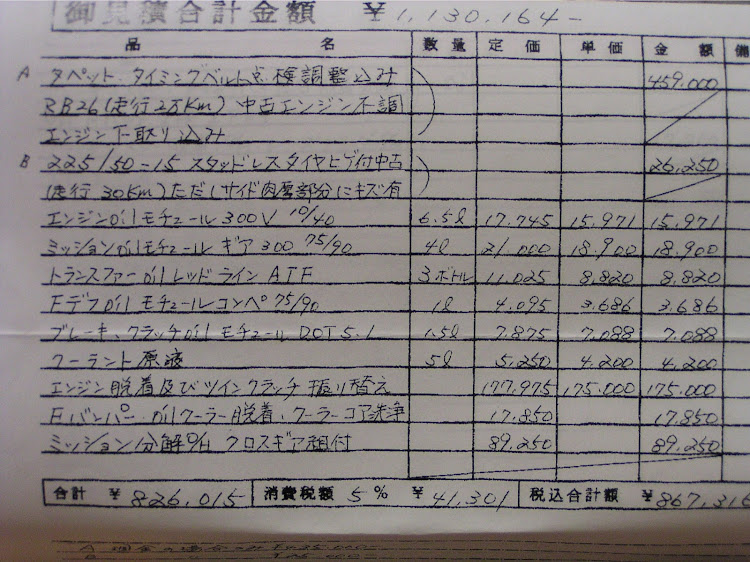 御見積合計金額 ¥1,130,164-
品 名 数量 定価 単価 金額 備
A タペット、タイミングベルト点検調整込み 459,000
RB26(走行28Km)中古エンジン不調
エンジン下取り込み
B 225/50-15 スタッドレスタイヤヒゲ付中古 26,250
(走行30Km)ただしサイド肉厚部分にキズ有
エンジンOilモチュール300V 10/40 6.5ℓ 17.745 15.971 15.971
ミッションOilモチュール ギア300 75/90 4ℓ 21.000 18.900 18.900
トランスファーOilレッドラインATF 3ボトル 11.025 8.820 8.820
FデフOilモチュールコンペ75/90 1ℓ 4.095 3.686 3.686
ブレーキ、クラッチOilモチュールDOT5.1 1.5ℓ 7.875 7.088 7.088
クーラント原液 5ℓ 5.250 4.200 4.200
エンジン脱着及びツインクラッチ振り替え 177.975 175.000 175.000
Fバンパー、Oilクーラー脱着、クーラーコア洗浄 17.850 17.850
ミッション分解O/H クロスギア組付 89.250 89.250
合計 ¥826,015 消費税額 5% ¥41,301 税込合計額 ¥867,316